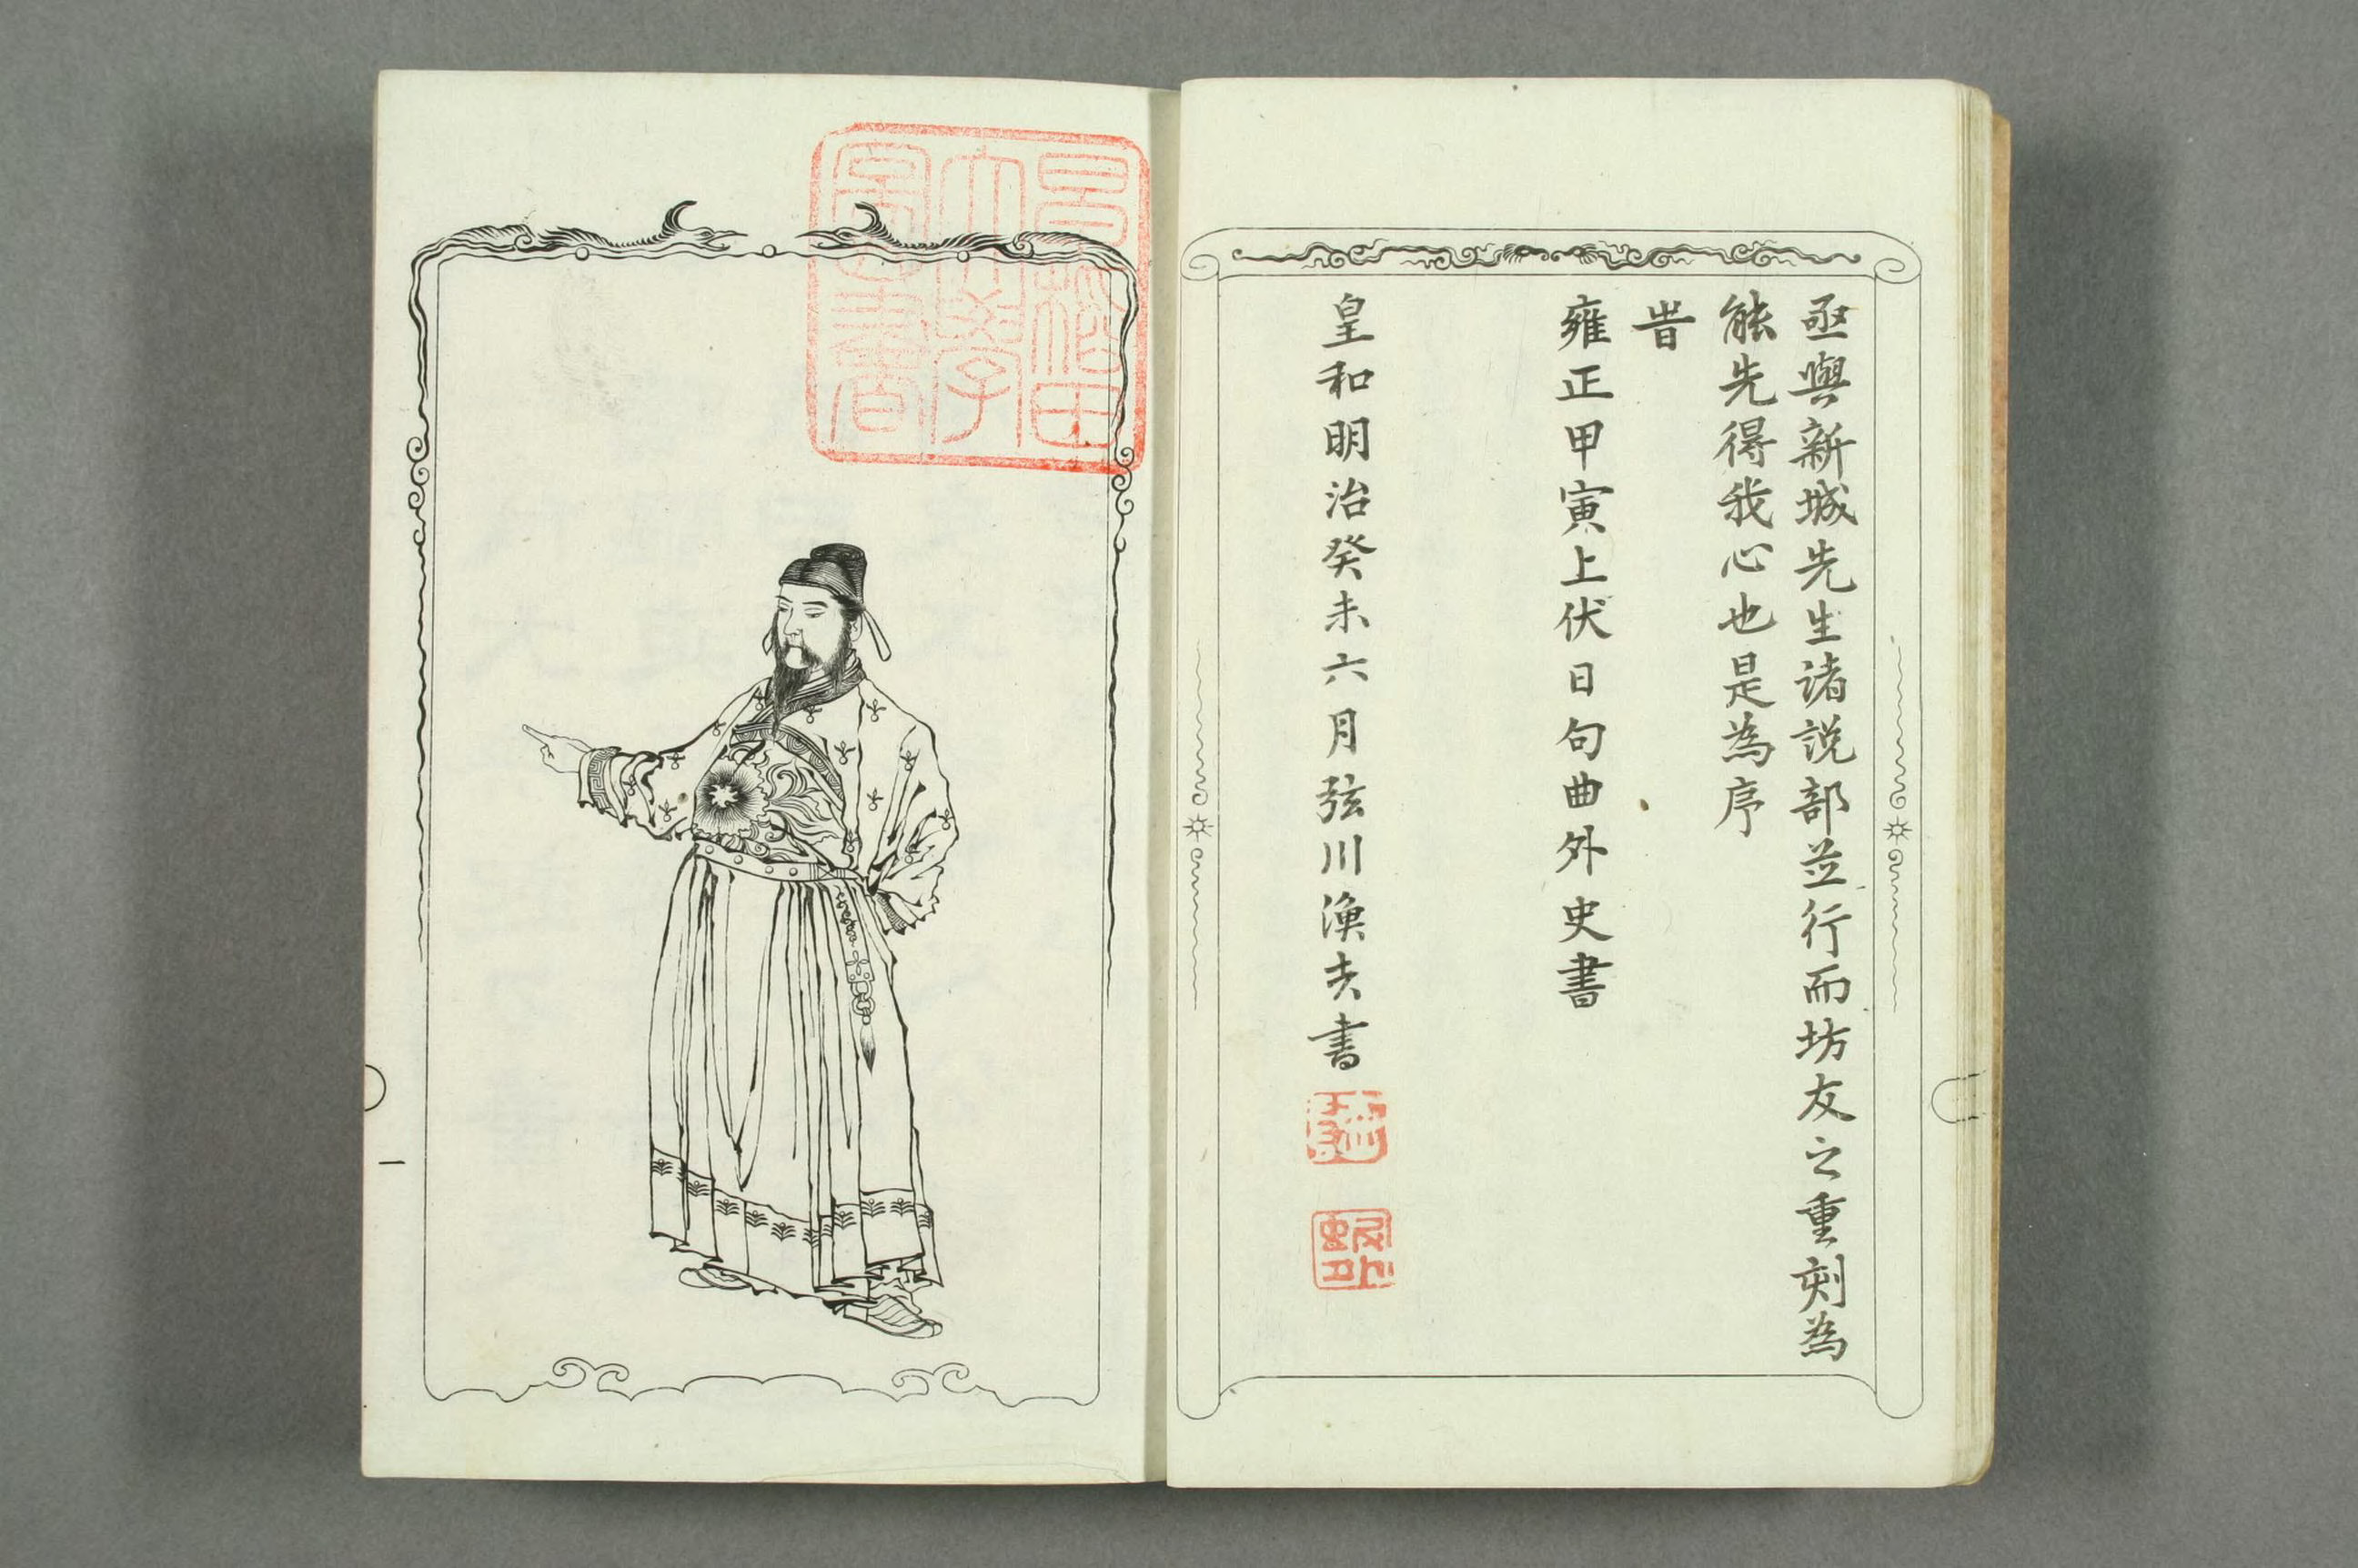 亟與新城先生諸説部並行而坊友之重刻為
能先得我心也是為序
旹
雍正甲寅上伏日句曲外史書
皇和明治癸未六月弦川漁夫書
早稲田
大學
圖書
一